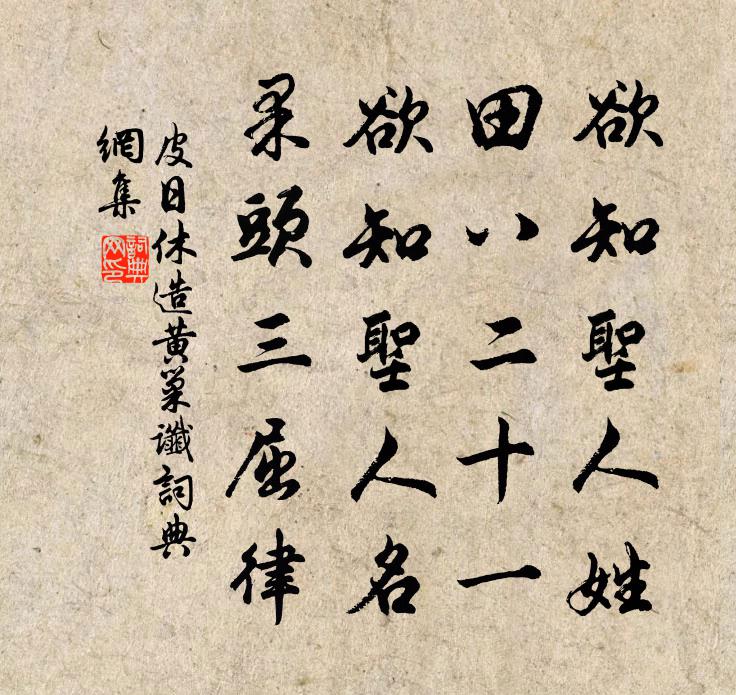 欲知聖人姓
田八二十一
欲知聖人名
果頭三屈律
皮日休造黃巢讖詞典
網集
詞典
网印